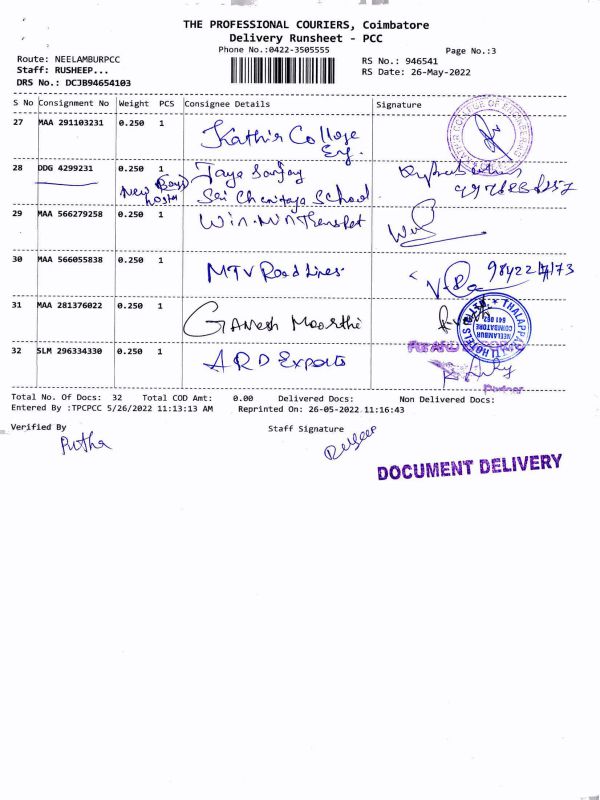 THE PROFESSIONAL COURIERS, Coimbatore
Delivery Runsheet - PCC
Phone No.:0422-3505555
Page No.:3
Route: NEELAMBURPCC
RS No.: 946541
Staff: RUSHEEP...
RS Date: 26-May-2022
DRS No.: DCJB94654103
S No Consignment No Weight PCS Consignee Details Signature
27 MAA 291103231 0.250 1 Kathir College
Eng.
28 DDG 4299231 0.250 1 Jaya Sanjay
New Boys Sai Chenitaya School
hostel
29 MAA 566279258 0.250 1 Win.Win
30 MAA 566055838 0.250 1 MTV Road Lines
31 MAA 281376022 0.250 1 Ganesh Moorthi
32 SLM 296334330 0.250 1 ARD Exports
Partner
Total No. Of Docs: 32 Total COD Amt: 0.00 Delivered Docs: Non Delivered Docs:
Entered By :TPCPCC 5/26/2022 11:13:13 AM Reprinted On: 26-05-2022 11:16:43
Verified By Staff Signature
DOCUMENT DELIVERY